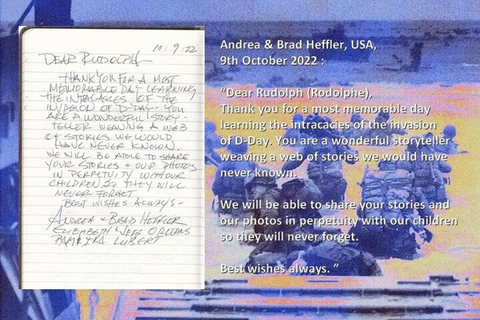 10.9.22
DEAR RUDOLPH,
THANK YOU FOR A MOST
MEMORABLE DAY LEARNING
THE INTRACACIES OF THE
INVASION OF D-DAY. YOU
ARE A WONDERFUL STORY-
TELLER WEAVING A WEB
OF STORIES WE WOULD
HAVE NEVER KNOWN.
WE WILL BE ABLE TO SHARE
YOUR STORIES & OUR PHOTOS
IN PERPETUITY WITH OUR
CHILDREN SO THEY WILL
NEVER FORGET.
BEST WISHES ALWAYS -
ANDREA & BRAD HEFFLER
ELIZABETH
LUBERT
Andrea & Brad Heffler, USA,
9th October 2022 :
“Dear Rudolph (Rodolphe),
Thank you for a most memorable day
learning the intracacies of the invasion
of D-Day. You are a wonderful storyteller
weaving a web of stories we would have
never known.
We will be able to share your stories and
our photos in perpetuity with our children
so they will never forget.
Best wishes always. ”